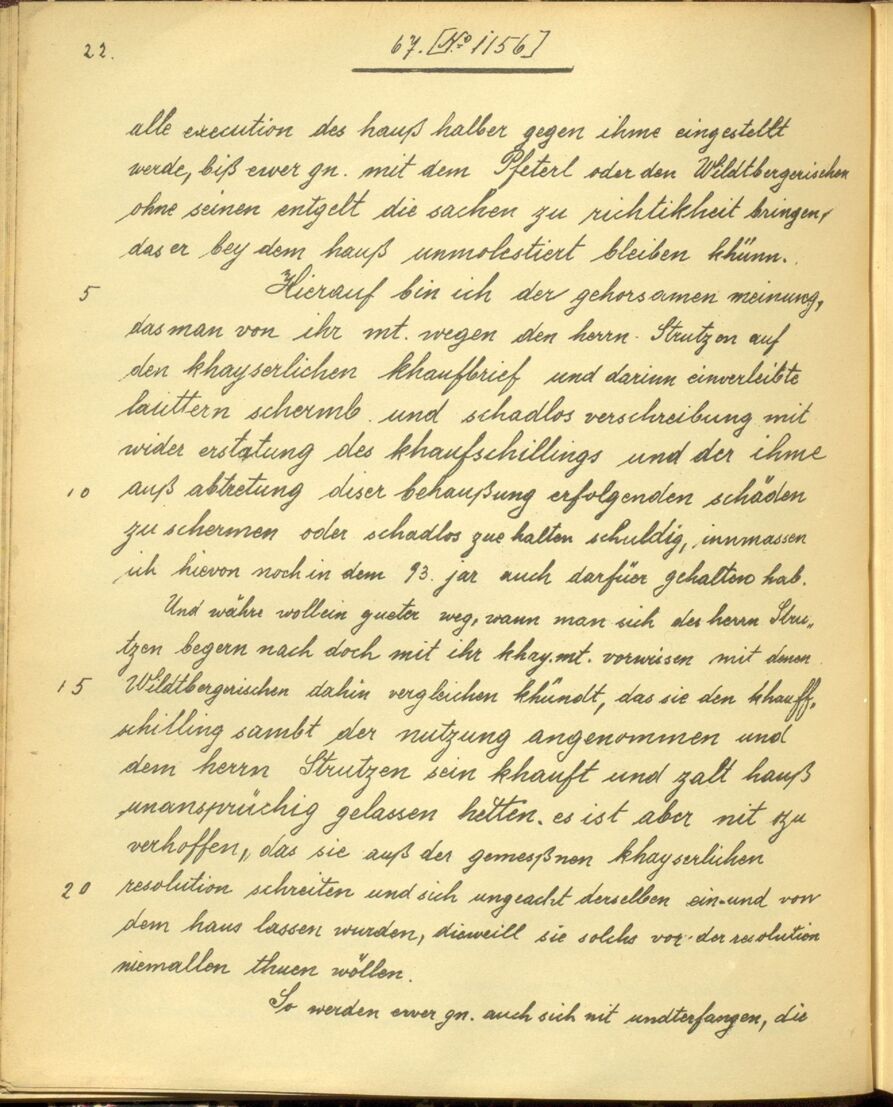 22.
67. [No 1156]
alle execution des hauß halber gegen ihme eingestellt
werde, biß ewer gn. mit dem Pfeterl oder den Wildtbergerischen
ohne seinen entgelt die sachen zu richtikheit bringen,
das er bey dem hauß unmolestiert bleiben khünn.
5 Hierauf bin ich der gehorsamen meinung,
das man von ihr mt. wegen den herrn Strutzen auf
den khayserlichen khaufbrief und darinn einverleibte
lauttern schermb und schadlos verschreibung mit
wider erstatung des khaufschillings und der ihme
10 auß abtretung diser behaußung erfolgenden schäden
zu schermen oder schadlos zue halten schuldig, innmassen
ich hievon noch in dem 93. jar auch darfüer gehalten hab.
Und währe woll ein gueter weg, wann man sich des herrn Stru„
tzen begern nach doch mit ihr khay. mt. vorwissen mit denen
15 Wildtbergerischen dahin vergleichen khündt, das sie den khauff„
schilling sambt der nutzung angenommen und
dem herrn Strutzen sein khauft und zalt hauß
unansprüchig gelassen hetten. es ist aber nit zu
verhoffen, das sie auß der gemeßnen khayserlichen
20 resolution schreiten und sich ungeacht derselben ein- und von
dem haus lassen wurden, dieweill sie solchs vor der resolution
niemallen thuen wöllen.
So werden ewer gn. auch sich nit undterfangen, die